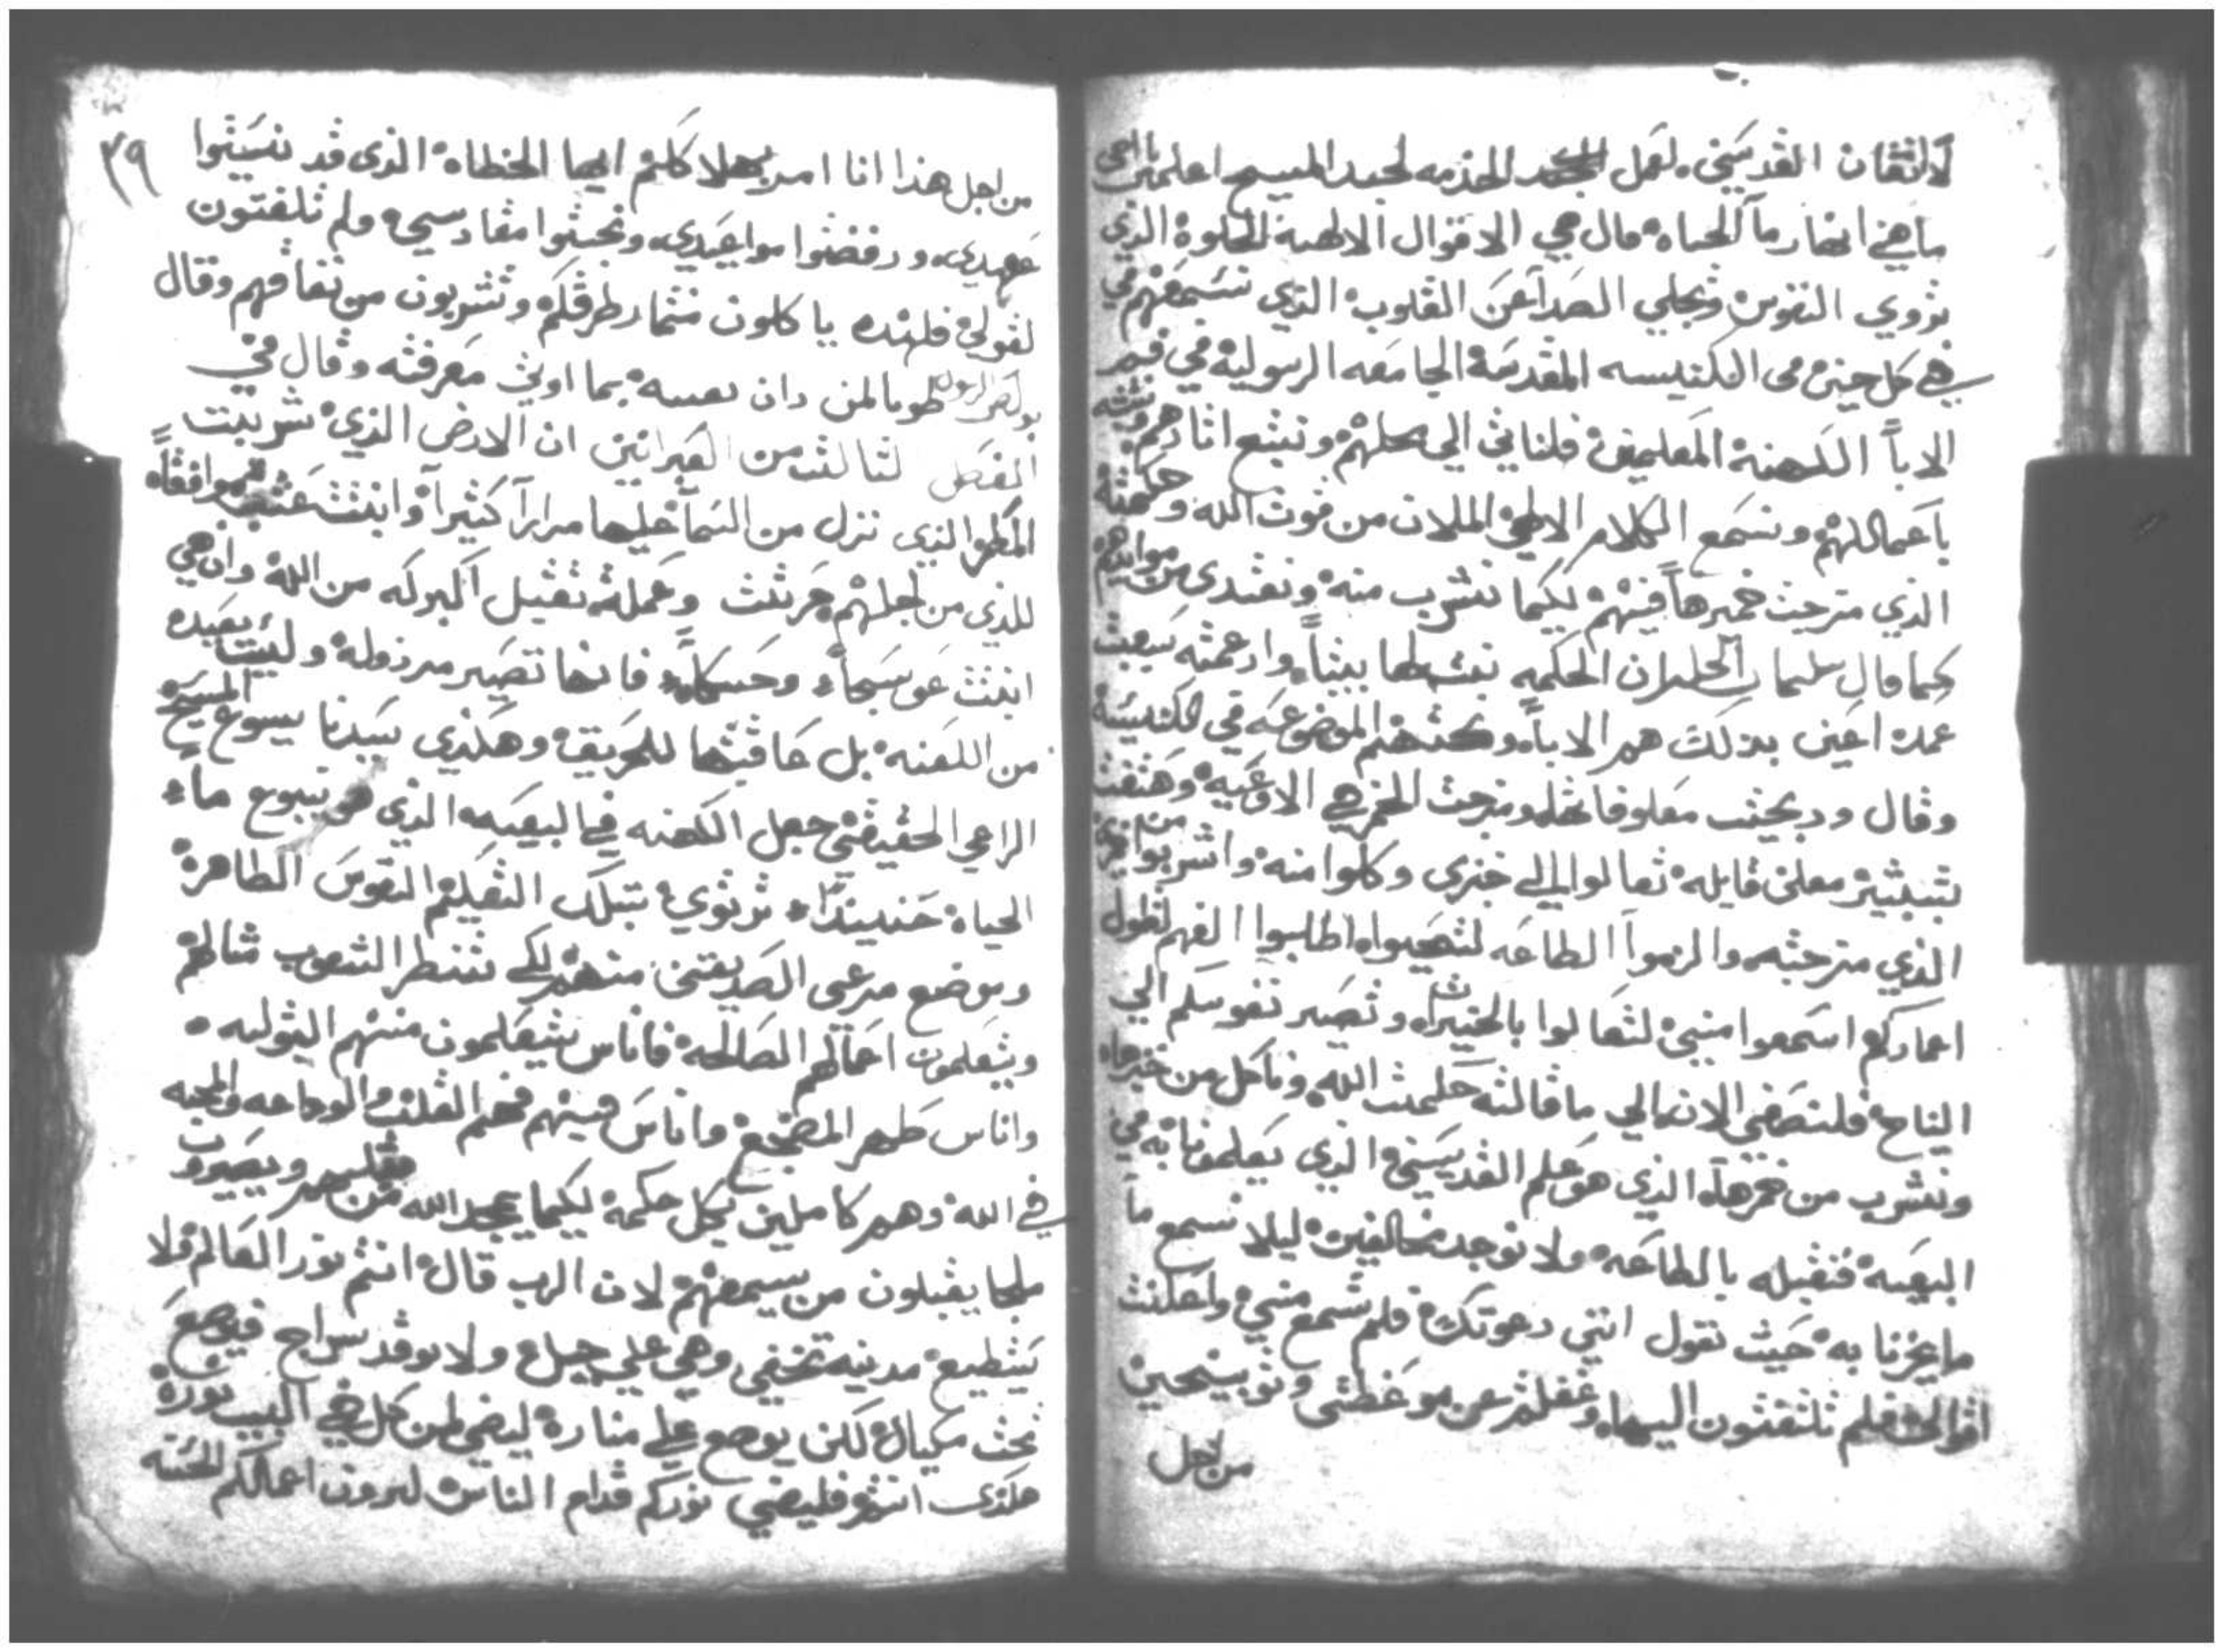 لاتقان القديسين. لعمل الخدمه لجسد المسيح اعلمني يا اخي
ما هي انهار مآ الحياه قال هي الاقوال الالهية الحلوة الذي
تروي النفوس وتجلي الصدآ عن القلوب الذي نسمعهم في
في كل حين في الكنيسه المقدسة الجامعه الرسولية من فم
الابآ الكهنة المعلمين فلناتي الي محلهم ونتبع اثارهم ونتشبه
باعمالهم ونسمع الكلام الالهي الملان من قوت الله وحكمته
الذي مزجت خمرها فيهم لكيما نشرب منه ونغتدي من موايدهم
كما قال سليمان الحكمه بنت لها بيتاً وادعمته سبعت
عمده اعني بذلك هم الابآ وكتبهم الموضوعه في الكنيسة
وقال ودبحت معلوفاتها ومزجت الخمر في الاوعيه وهتفت
بتبشير معلن قايله تعالوا الي خبزي وكلوا منه واشربوا من خمري
الذي مزجته والزموا الطاعه لتحيوا اطلبوا الفهم لتطول
اعماركم اسمعوا مني لتعالوا بالخيرات وتصير نفوسكم الي
النياح فلنصغي الان الي ما قالته حكمت الله وناكل من خبزها
ونشرب من خمرها الذي هو علم القديسين الذي يعلمونا به في
البيعه فنقبله بالطاعه ولا نوجد مخالفين ليلا نسمع ما
ما يحزنا به حيث تقول انني دعوتكم فلم تسمع مني واعلنت
اقوالي فلم تلتفتون اليها وغفلتم عن موعظتي وتوبيخي حين
من اجل
٣٩
من اجل هذا انا امر بهلاككم ايها الخطاه الذي قد نسيتوا
عهدي ورفضتوا مواعيدي ونجستوا مقادسي ولم تلفتون
لقولي فلهذه ياكلون من ثمار طرقكم وتشربون من نفاقهم وقال
بولص الرسول طوبا لمن دان نفسه بما اوتي معرفته وقال في
الفصل الثالث من العبرانين ان الارض الذي شربت
المطر الذي نزل من السمآ عليها مراراً كثيراً وانبتت عشب موافقاً
للذي من اجلهم حرثت وعملة تقبل البركه من الله وان هي
انبتت عوسجاً وحسكاً فانها تصير مرذوله وليست بعيده
من اللعنه بل عاقبتها للحريق وهكذي سيدنا يسوع المسيح
الراعي الحقيقي جعل الكهنه في البيعه الذي هو ينبوع ماء
الحياه حنيندا ترتوي بتلك التعليم النفوس الطاهرة
وموضع مرعى الصديقين منهم لكي تنظر الشعوب مثالهم
ويتعلمون اعمالهم الصالحة فاناس يتعلمون منهم البتوليه
واناس طهر المضجع واناس منهم فهم القلب والوداعه والمحبه
في الله وهم كاملين بكل حكمة لكيما يمجد الله من قبلهم ويصيروا
ملحا يقبلون من يسمعهم لان الرب قال انتم نور العالم فلا
يستطيع مدينه تخفي وهي علي جبل ولا يوقد سراج فيوضع
تحت مكيال لكن يوضع علي منارة ليضي لمن كل في البيت نوره
هكذي انتم فليضي نوركم قدام الناس ليرون اعمالكم الحسنه